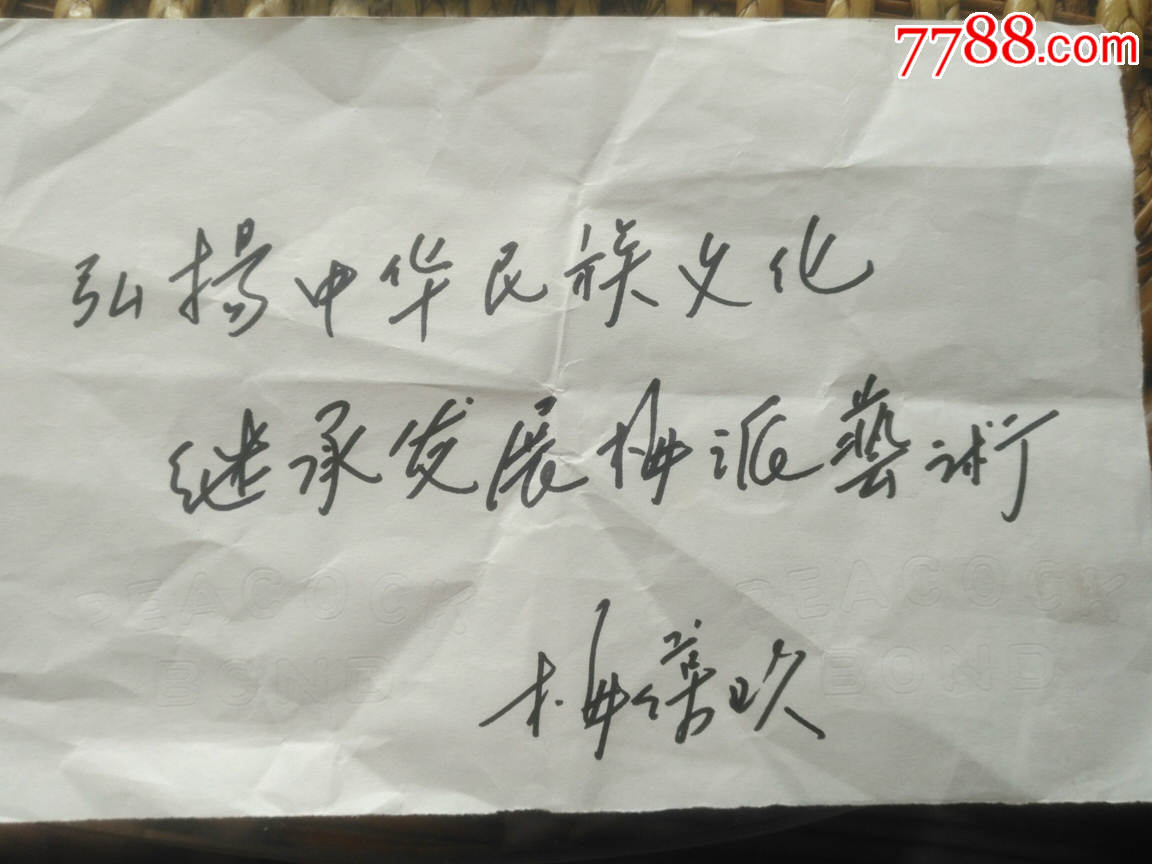 7788.com
弘揚中华民族文化
继承发展梅派藝術
PEACOCK PEACOCK
BOND BOND
梅葆玖